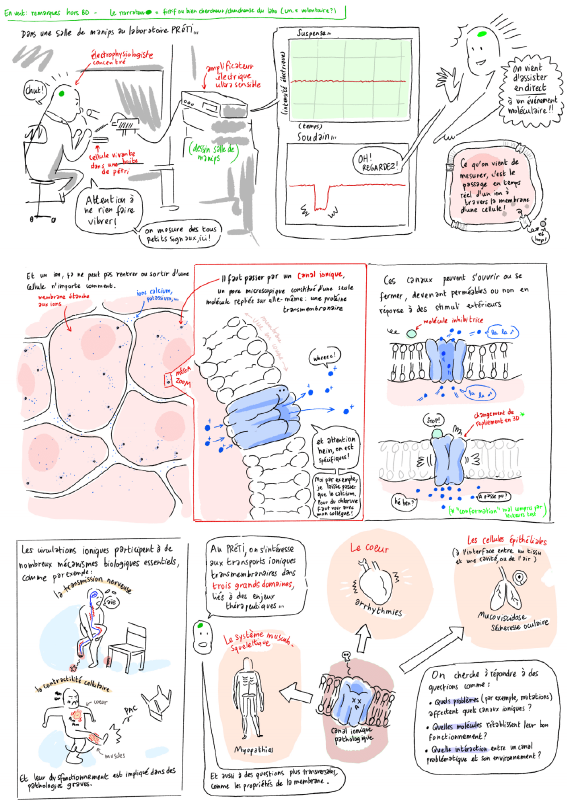 En vert: remarques hors BD - Le narrateur = fictif ou bien chercheur/chercheuse du labo (un.e volontaire?)
Dans une salle de manips au laboratoire PRéTI...
électrophysiologiste
concentré
Chut!
amplificateur
électrique
ultra sensible
cellule vivante
dans une boîte
de pétri
(dessin salle de
manips)
Attention à
ne rien faire
vibrer!
on mesure des tous
petits signaux, ici!
Suspense...
(intensité électrique)
(temps)
Soudain...
OH!
REGARDEZ!
On vient
d'assister
en direct
à un événement
moléculaire!!
Ce qu'on vient de
mesurer, c'est le
passage en temps
réel d'un ion à
travers la membrane
d'une cellule!
Et un ion, ça ne peut pas rentrer ou sortir d'une
cellule n'importe comment.
membrane étanche
aux ions
ions calcium,
potassium,...
Il faut passer par un canal ionique,
Un pore microscopique constitué d'une seule
molécule repliée sur elle-même: une protéine
transmembranaire
ZOOM
whooo!
et attention
hein, on est
spécifique!
Moi par exemple,
je laisse passer
que le calcium.
Pour du chlorure
faut voir avec
mon collègue!
Ces canaux peuvent s'ouvrir ou se
fermer, devenant perméables ou non en
réponse à des stimuli extérieurs
molécule inhibitrice
la la ♪
la la ♪
Stop!
changement de
repliement en 3D *
hé ben?
ça passe pu?
(* "conformation" mal compris par
Les circulations ioniques participent à de
nombreux mécanismes biologiques essentiels,
comme par exemple:
la transmission nerveuse
aïe
la contractilité cellulaire
cœur
PAC
muscles
Et leur dysfonctionnement est impliqué dans des
pathologies graves.
Au PRéTI, on s'intéresse
aux transports ioniques
transmembranaires dans
trois grands domaines,
liés à des enjeux
thérapeutiques...
Le coeur
arrhythmies
Les cellules épithéliales
(à l'interface entre un tissu
et une cavité, ou de l'air)
Mucoviscidose
Sécheresse oculaire
Le système musculo-
squelettique
Myopathies
Canal ionique
pathologique
On cherche à répondre à des
questions comme:
• Quels problèmes (par exemple, mutations)
affectent quels canaux ioniques?
• Quelles molécules rétablissent leur bon
fonctionnement?
• Quelle interaction entre un canal
problématique et son environnement?
Et aussi à des questions plus transversales,
comme les propriétés de la membrane.